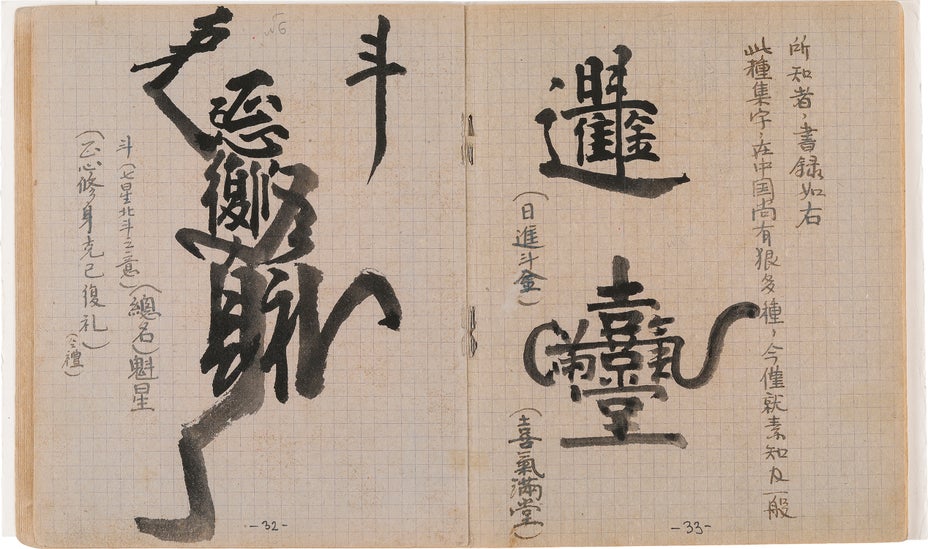 斗
(正心修身克己復礼)
(仝禮)
斗(七星北斗之意)
(總名)魁星
-32-
(日進斗金)
(喜氣滿堂)
此種集字,在中国尚有狠多種,今僅就素知及一般
所知者,書録如右
-33-